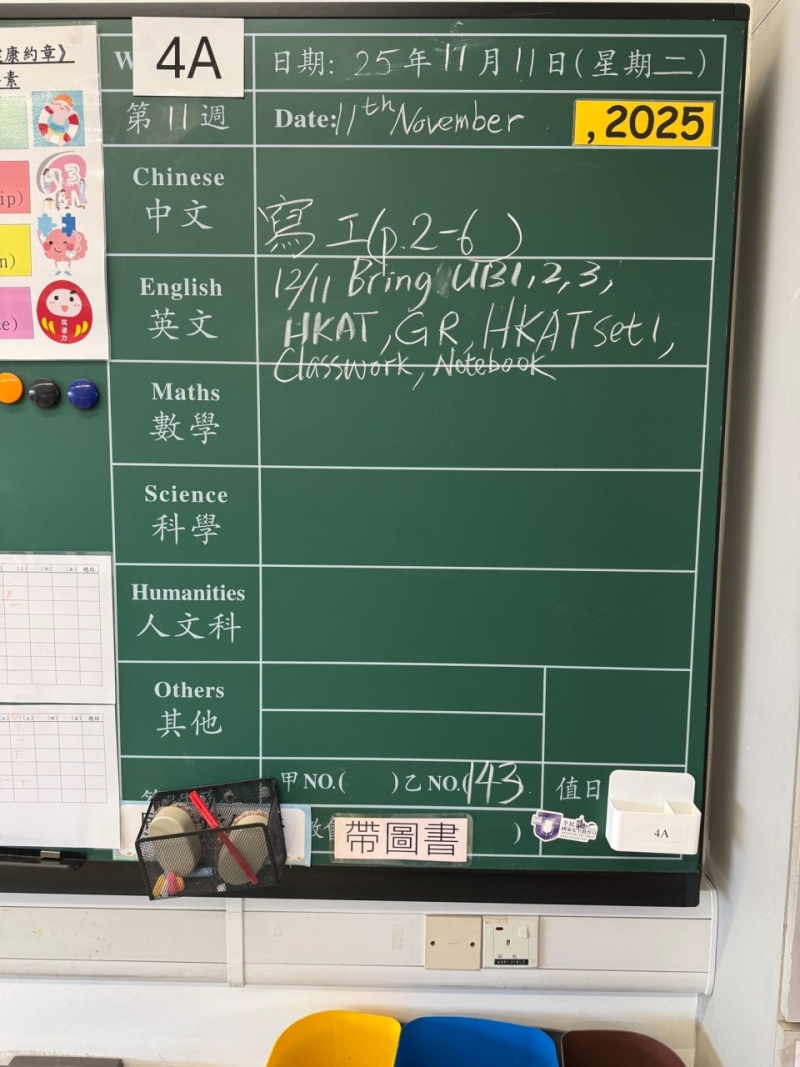 康約章》
素
4A
W
日期: 25年11月11日(星期二)
第11週
Date: 11th November
, 2025
Chinese
中文
寫工(p.2-6)
English
英文
12/11 Bring UB1, 2, 3,
HKAT, GR, HKAT set 1,
Classwork, Notebook
Maths
數學
Science
科學
Humanities
人文科
Others
其他
甲 NO.( ) 乙 NO.(143)
值日
帶圖書
)
4A